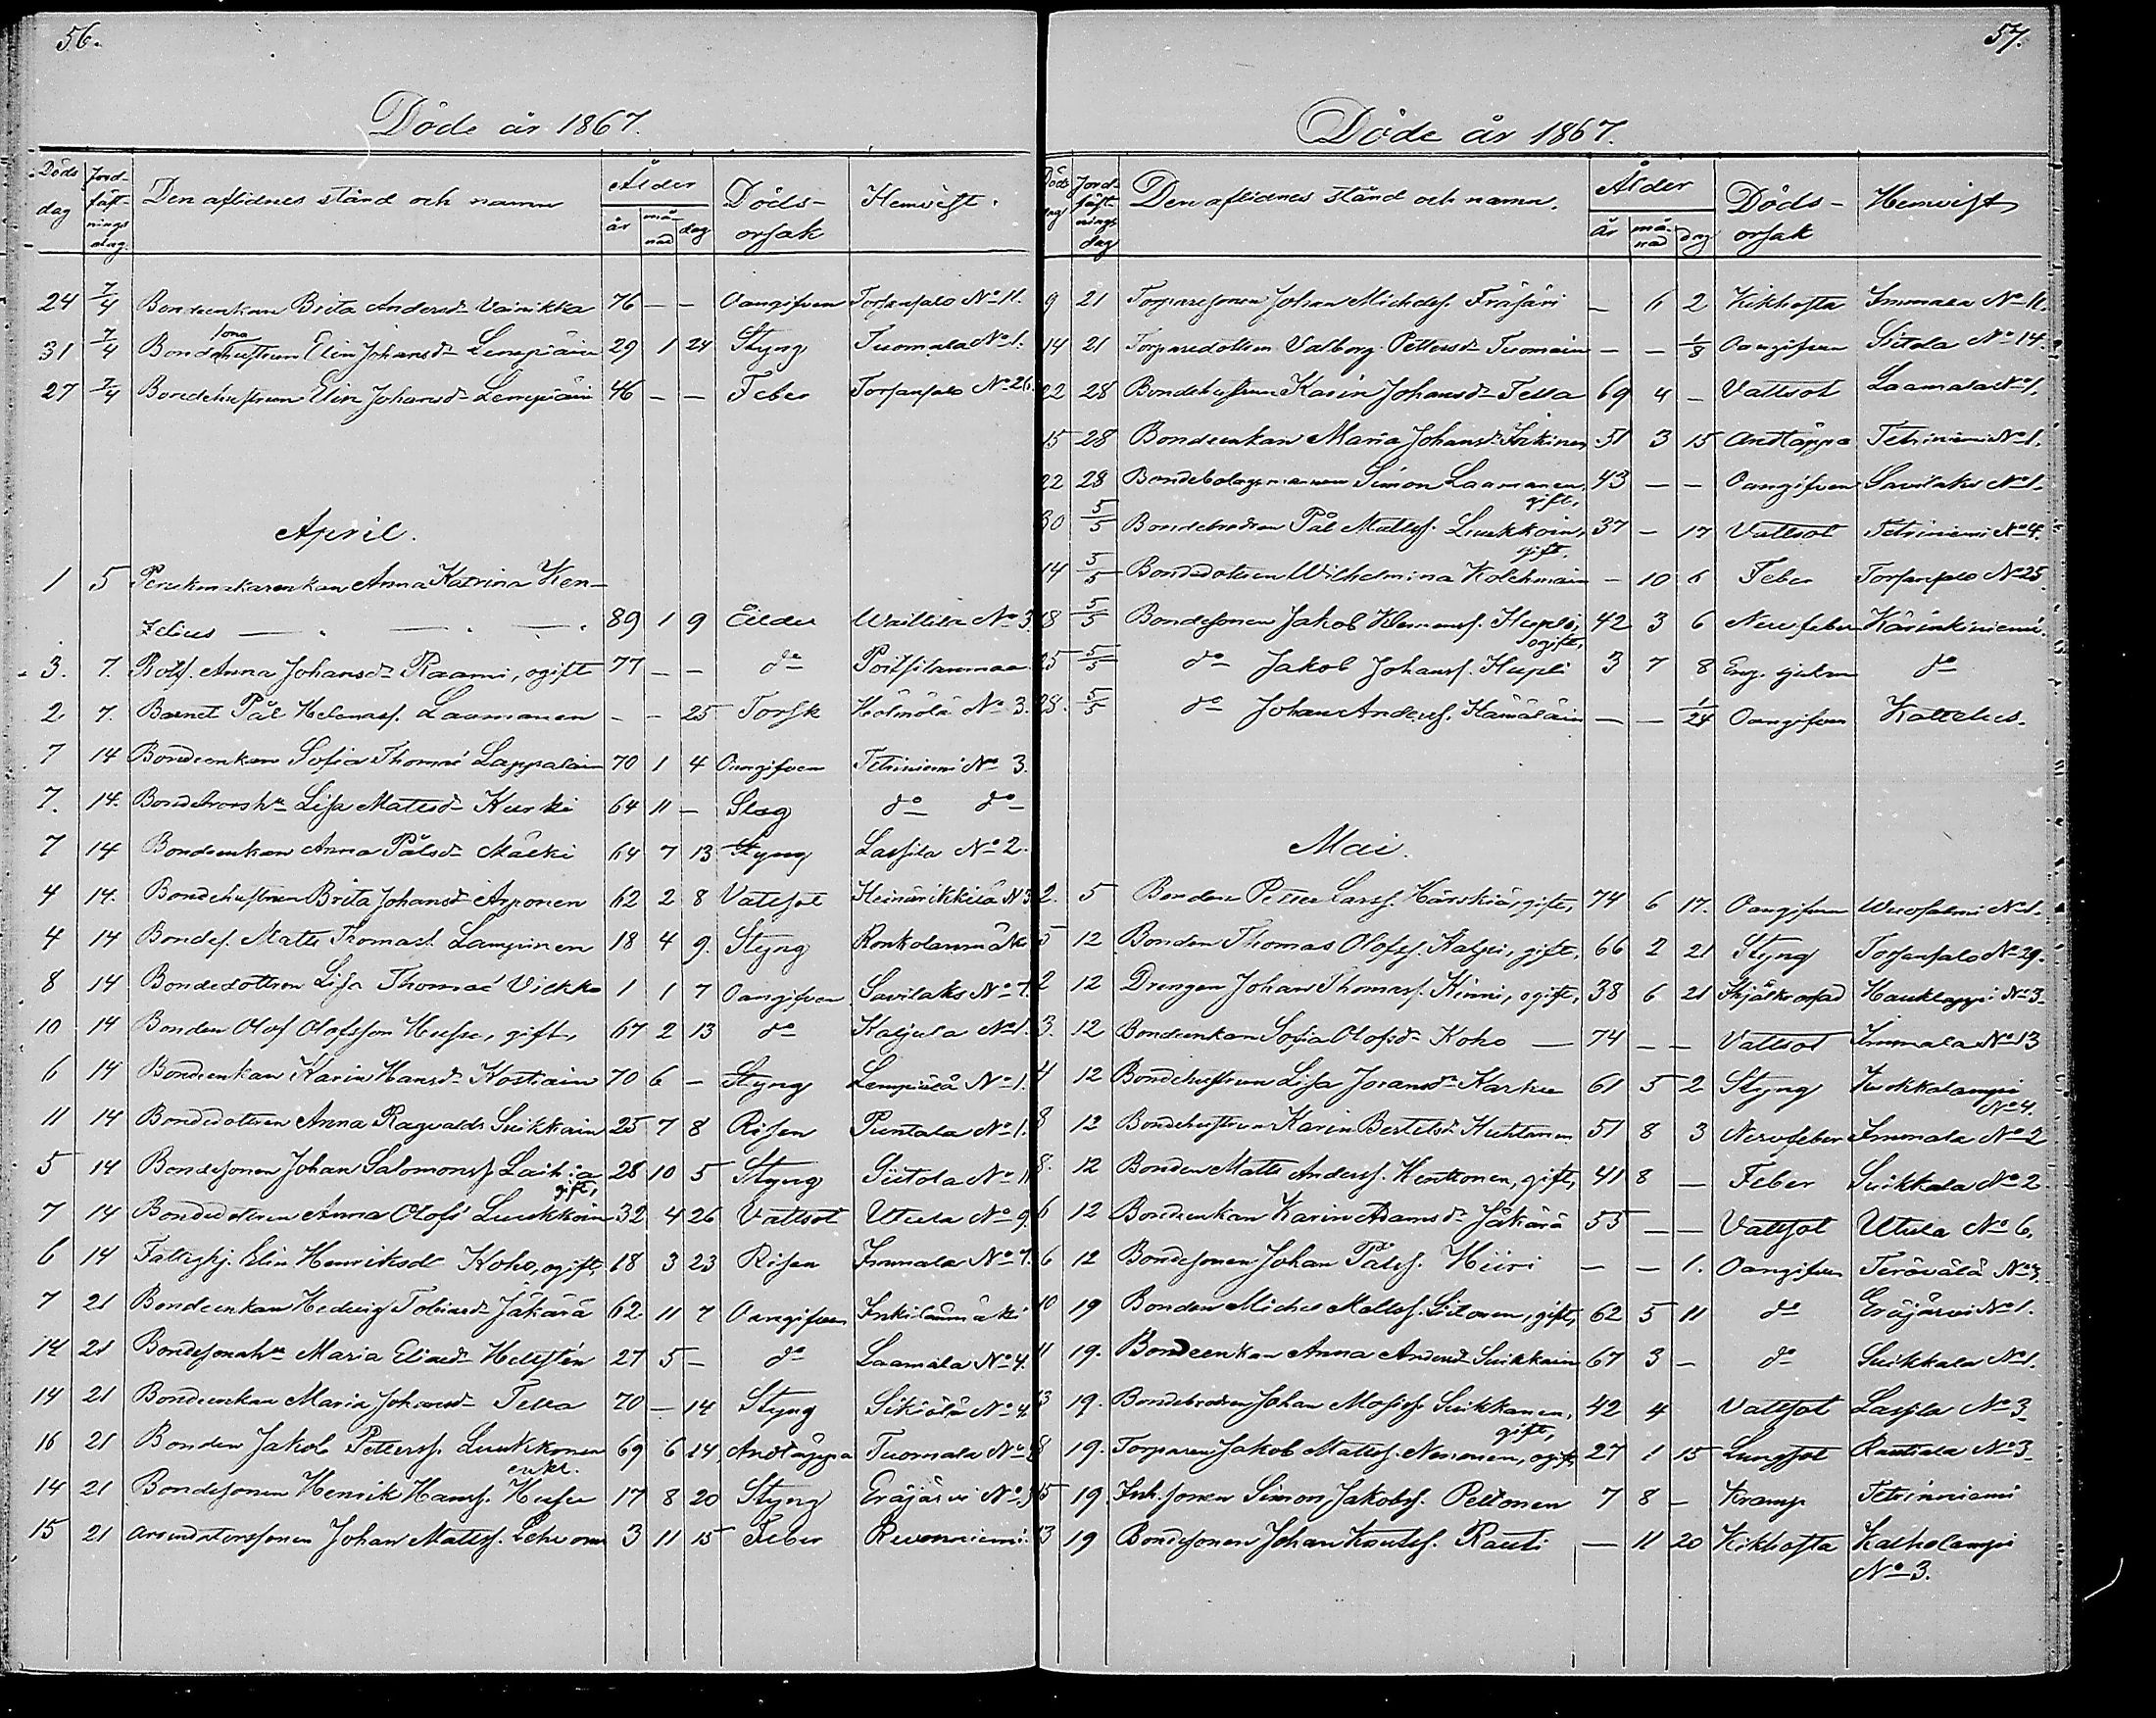 56.
Döde år 1867.
Döds dag Jordfästnings dag. Den aflidnes stånd och namn Ålder år månad dag Dödsorsak Hemvist.
24 7/4 Bondeenkan Brita Andersd:r Vainikka 76 — — Oangifven Torsansalo N:o 11.
31 7/4 Bondesonahustrun Elin Johansd:r Lempiäin 29 1 24 Styng Tuomala N:o 1.
27 7/4 Bondehustrun Elin Johansd:r Lempiäin 46 — — Feber Torsansalo N:o 26.
April.
1 5 Perukmakarenkan Anna Katrina Ken-
zelius — — — 89 1 9 Ålder Vaittila N:o 3.
3. 7. Rotf. Anna Johansd:r Raami, ogift 77 — — d:o Poitsilanmaa
2 7. Barnet Pål Helenass. Laamanen — — 25 Torsk Kölmölä N:o 3.
7 14 Bondeenkan Sofia Thomæ Lappalain 70 1 4 Oangifven Tetriniemi N:o 3.
7. 14. Lisa Mattsd:r Kurki 64 11 — Slag d:o d:o
7 14 Bondeenkan Anna Pålsd:r Mälki 64 7 13 Styng Lassila N:o 2.
4 14. Bondehustrun Brita Johansd:r Arponen 62 2 8 Vattsot Heinärikkilä N 3
4 14 Bondes. Matts Thomass. Lampinen 18 4 9. Styng Ronkolanmä
8 14 Bondedottren Lisa Thomæ Vilkko 1 1 7 Oangifven Savilaks N:o 7.
10 14 Bonden Olof Olofsson Husu, gift, 67 2 13 d:o Kaljula N:o 1.
6 14 Bondeenkan Karin Hansd:r Kostiain 70 6 — Styng Lempiälä N:o 1.
11 14 Bondedottren Anna Ragvalds Suikkain 25 7 8 Rosen Puntala N:o 1.
5 14 Bondesonen Johan Salomonss. Laihia 28 10 5 Styng Siitola N:o 11
gift,
7 14 Bondedottren Anna Olofs Luukkoin 32 4 26 Vattsot Utula N:o 9.
6 14 Fattighj. Elin Henriksdr Koho, ogift, 18 3 23 Rosen Immala N:o 7.
7 21 Bondeenkan Hedvig Tobiasd:r Jäkärä 62. 11 7 Oangifven Inkilänmäki
14 21 Bondesonah:n Maria Eliæd:r Hellstén 27 5 — d:o Laamala N:o 4.
14 21 Bondeenkan Maria Johansd:r Tella 70 — 14 Styng Sikiölä N:o 4.
16 21 Bonden Jakob Petterss. Luukkonen 69 6 14 Andtäppa Tuomala N:o
enkl.
14 21 Bondesonen Henrik Hanss. Husu 17 8 20 Styng Eräjärvi N:o
15 21 Arrendatorssonen Johan Mattss. 3 11 15 Feber Revonniemi.
57.
Döde år 1867.
Döds dag Jordfästnings dag Den aflidnes stånd och namn. Ålder år månad dag Dödsorsak Hemvist
9 21 Torparesonen Johan Michelss. Fräsäri — 6 2 Kikhosta Immala N:o 11.
14 21 Torparedottren Valborg Pettersd:r Tuomain — — 1/8 Oangifven Siitola N:o 14.
22 28 Bondehustrun Karin Johansd:r Tella 69 4 — Vattsot Laamala N:o 1.
15 28 Bondeenkan Maria Johansd:r Inkinen 51 3 15 Andtäppa Tetriniemi N:o 1.
22 28 Bondebolagsmannen Simon Laamanen, 43 — — Oangifven Savilaks N:o 1.
gift,
30 5/5 Bondebrodren Pål Mattss. Luukkoin, 37 — 17 Vattsot Tetriniemi N:o 4.
gift.
14 5/5 Bondedottren Wilhelmina Kolehmain — 10 6 Feber Torsansalo N:o 25
18 5/5 Bondesonen Jakob Klemenss. Hupli, 42 3 6 Nervfeber Kärinkiniemi.
ogift,
25 5/5 d:o Jakob Johanss. Hupli 3 7 8 Eng. sjukan d:o
28. 5/5 d:o Johan Anderss. Hämäläin — — 1/24 Oangifven Kattelus.
Mai.
2. 5 Bonden Petter Larss. Härskiä, gift, 74 6 17. Oangifven N:o 1.
5 12 Bonden Thomas Olofss. Kalpi, gift, 66 2 21 Styng Torsansalo N:o 29.
2 12 Drengen Johan Thomass. Kinni, ogift, 38 6 21 Ihjälkrossad Hauklappi N:o 3
3. 12 Bondeenkan Sofia Olofsd:r Koho — 74 — — Vattsot Immala N:o 13
4 12 Bondehustrun Lisa Joransd:r Karhu 61 5 2 Styng Kukkalampi
N:o 4.
8 12 Bondehustrun Karin Bertelsd:r Huhtanen 51 8 3 Nervfeber Immala N:o 2
8. 12 Bonden Matts Anderss. Kenttonen, gift, 41 8 — Feber Suikkala N:o 2
6 12 Bondeenkan Karin Adamsd:r Jäkärä 55 — — Vattsot Utula N:o 6.
6 12 Bondesonen Johan Pålss. Hiiri — — 1. Oangifven Terävälä N:o 3.
10 19 Bonden Michel Mattss. Siitonen, gift, 62 5 11 d:o Eräjärvi N:o 1.
11 19. Bondeenkan Anna Andersd:r Suikkain 67 3 — d:o Suikkala N:o 1.
13 19. Bondebrodren Johan Mosess. Suikkanen, 42 4 Vattsot Lassila N:o 3
gift,
8 19. Torparen Jakob Mattss. Neronen, ogift, 27 1 15 Lungsot Rautiala N:o 3
15 19. Inh. sonen Simon Jakobss. Peltonen 7 8 — Kramp Tetrinniemi
13 19 Bondesonen Johan Knutss. Rauti — 11 20 Kikhosta Kalholampi
N:o 3.